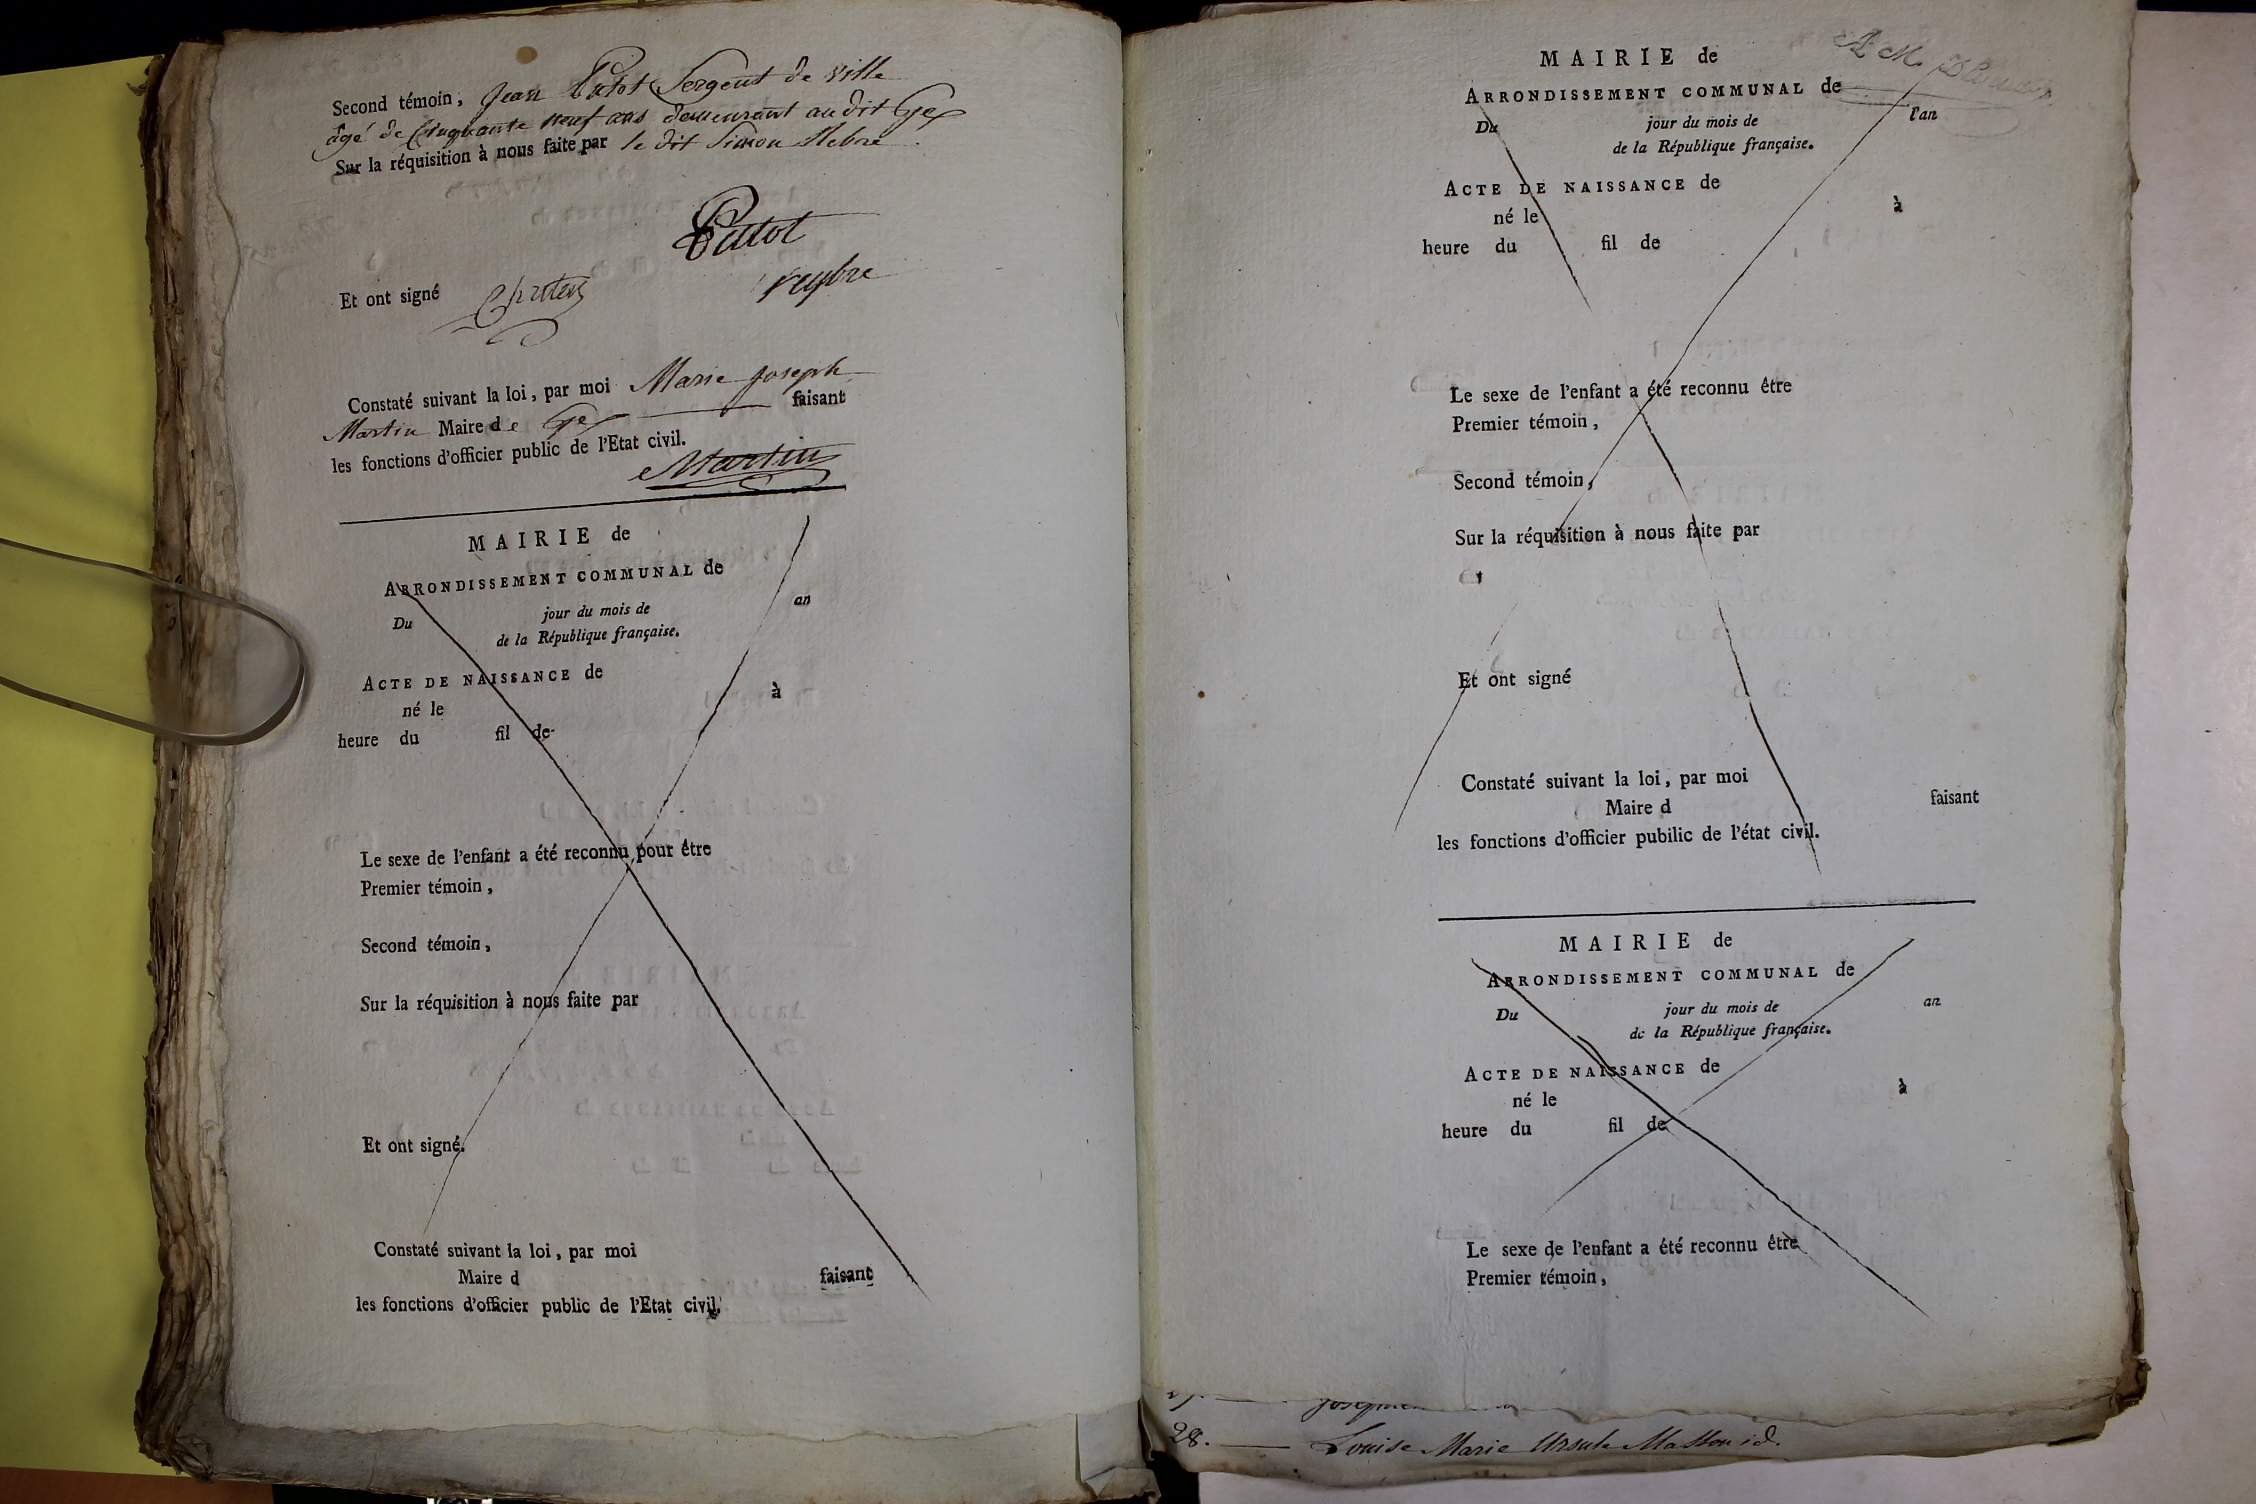 Second témoin, Jean Putot Sergent de ville
âgé de Cinquante neuf ans demeurant au dit Gex
Sur la réquisition à nous faite par le dit Simon
Putot
Et ont signé
Constaté suivant la loi, par moi Marie Joseph
Martin Maire de Gex faisant
les fonctions d'officier public de l'Etat civil.
Martin
MAIRIE de
ARRONDISSEMENT COMMUNAL de
Du jour du mois de an
de la République française.
ACTE DE NAISSANCE de
né le à
heure du fil de
Le sexe de l'enfant a été reconnu pour être
Premier témoin,
Second témoin,
Sur la réquisition à nous faite par
Et ont signé.
Constaté suivant la loi, par moi
Maire d faisant
les fonctions d'officier public de l'Etat civil.
MAIRIE de
ARRONDISSEMENT COMMUNAL de
Du jour du mois de l'an
de la République française.
ACTE DE NAISSANCE de
né le à
heure du fil de
Le sexe de l'enfant a été reconnu être
Premier témoin,
Second témoin,
Sur la réquisition à nous faite par
Et ont signé
Constaté suivant la loi, par moi
Maire d faisant
les fonctions d'officier pubilic de l'état civil.
MAIRIE de
ARRONDISSEMENT COMMUNAL de
Du jour du mois de an
de la République française.
ACTE DE NAISSANCE de
né le à
heure du fil de
Le sexe de l'enfant a été reconnu être
Premier témoin,
28. Louise Marie Ursule Masson id.